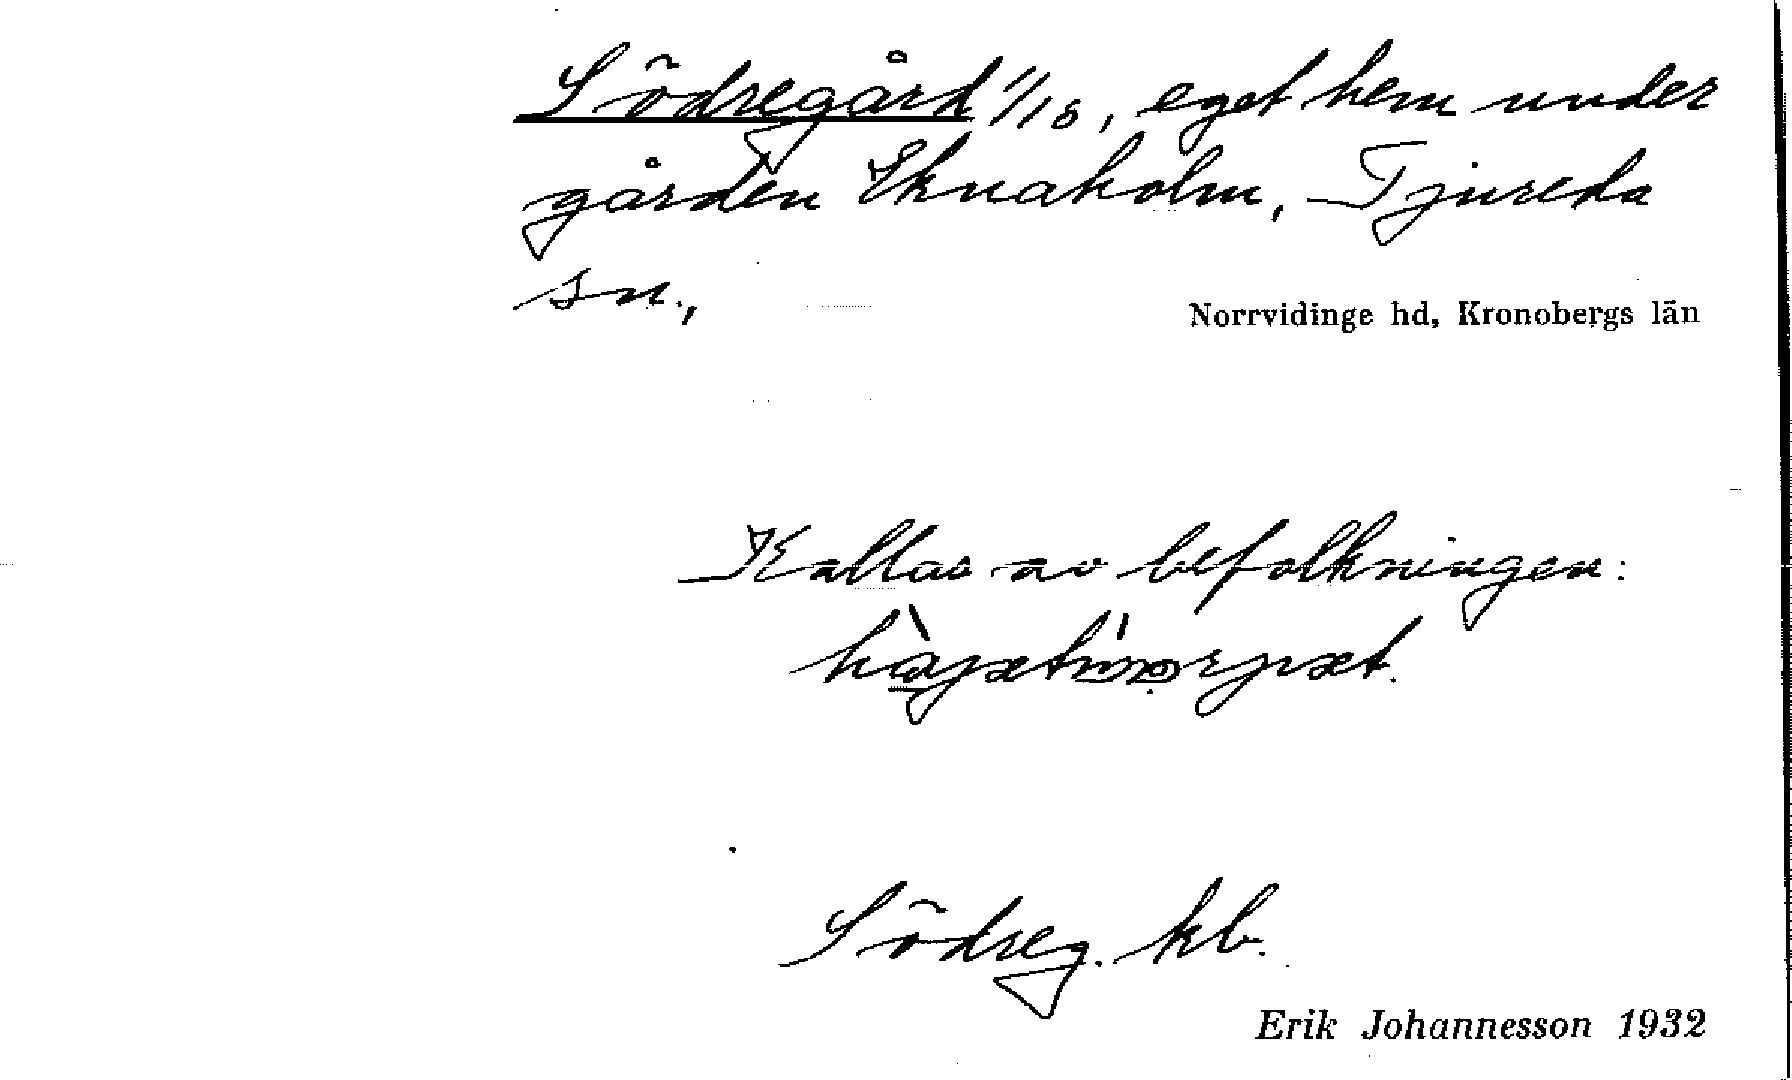 Södregård 1/18, eget hem under
gården Eknaholm, Tjureda
sn.,
Norrvidinge hd, Kronobergs län
Kallas av befolkningen:
Södreg. kb.
Erik Johannesson 1932